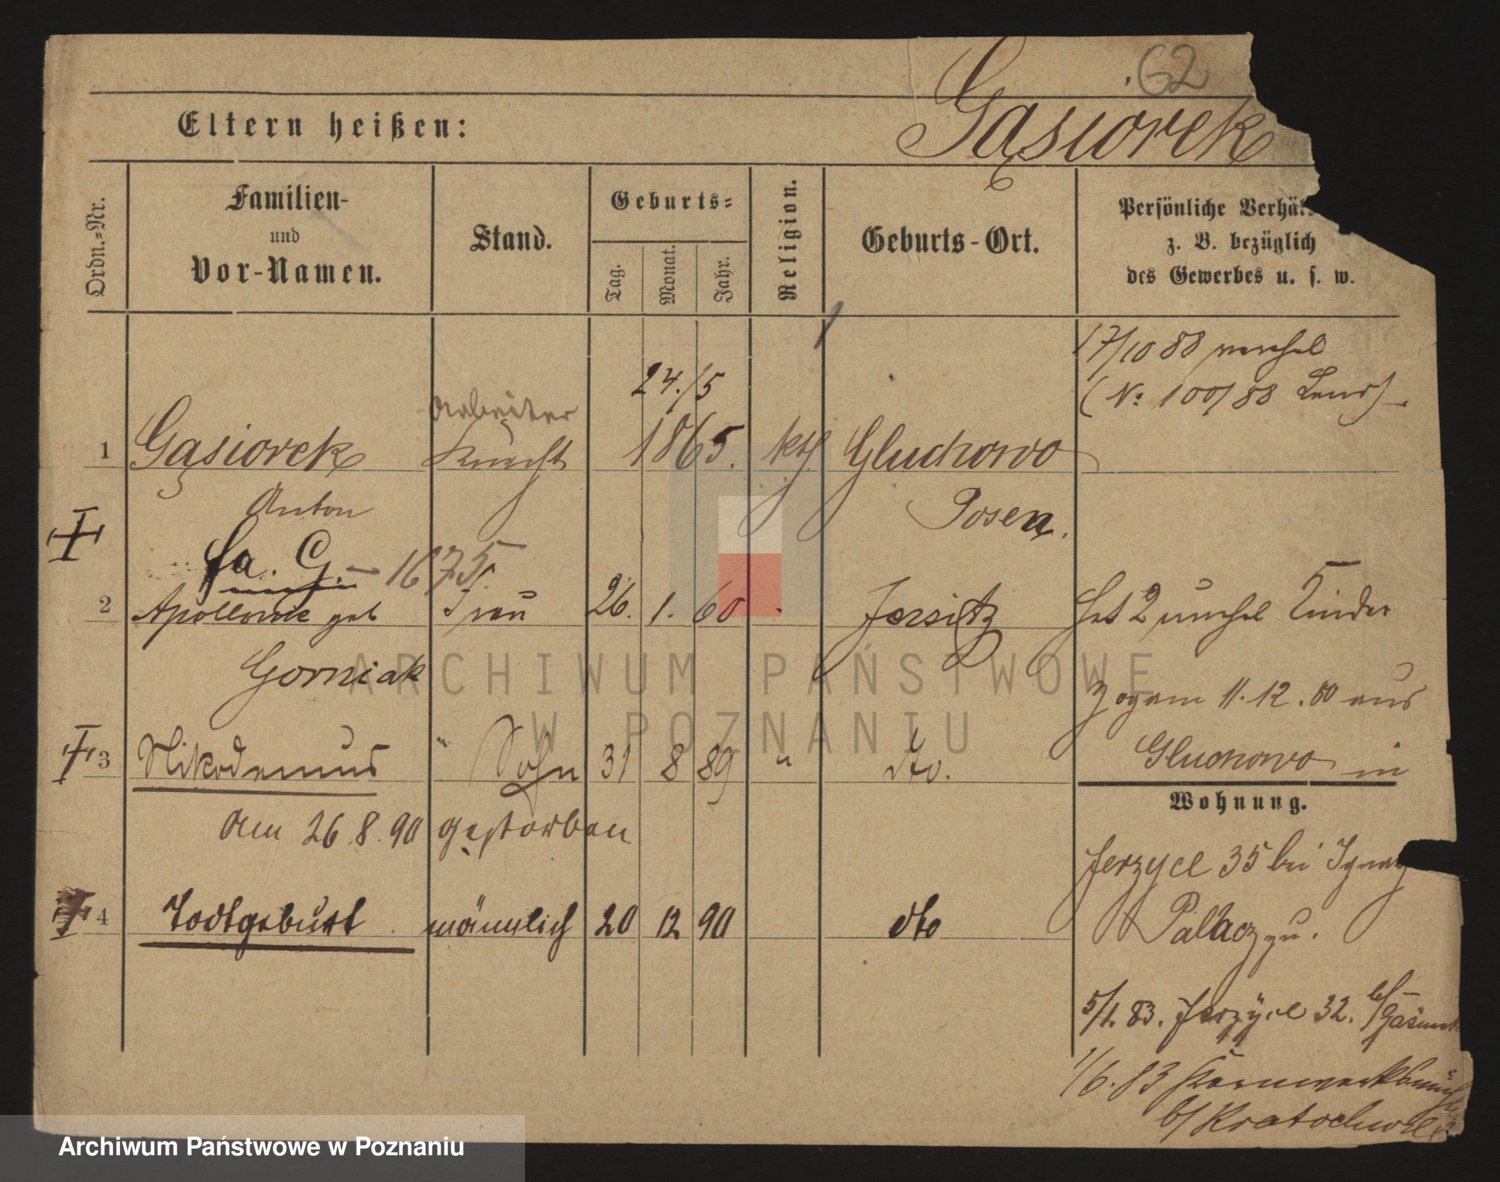 62
Gąsiorek
Eltern heißen:
Ordn.-Nr.
Familien-
und
Vor-Namen.
Stand.
Geburts-
Tag.
Monat.
Jahr.
Religion.
Geburts-Ort.
Persönliche Verhäl
z. B. bezüglich
des Gewerbes u. s. w.
17/10 88
(N: 100/88
24./5
Arbeiter
1 Gąsiorek Knecht 1865. kth Gluchowo
Anton Posen.
fa. G. – 1675.
2 Apollonie geb Frau 26. 1. 60 Jersitz
Hat 2 unehel Kinder
Gorniak
Zog am 11. 12. 80 aus
3 Nikodemus " Sohn 31 8 89 " dto.
Gluchowo in
Wohnung.
Am 26 8. 90 gestorben
Jerzyce 35 bei Ignatz
4 Todtgeburt. männlich 20 12 90 dto
Palacz zu.
5/1. 83. Jerzyce 32. b/
1/6. 83
b/ Kratochwill
ARCHIWUM PAŃSTWOWE
W POZNANIU
Archiwum Państwowe w Poznaniu